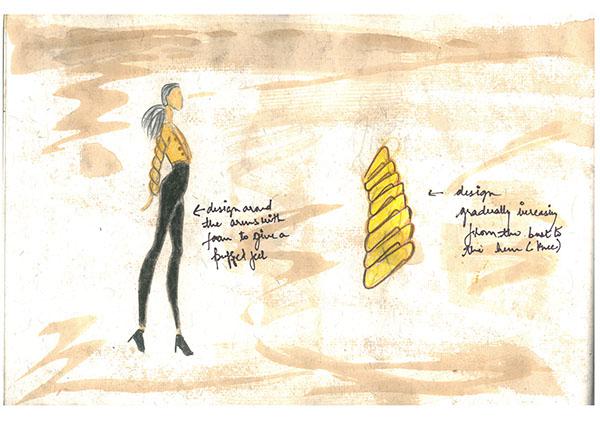 ← design around
the arms with
foam to give a
puffed feel
← design
gradually increasing
from the bust to
the hem (knee)